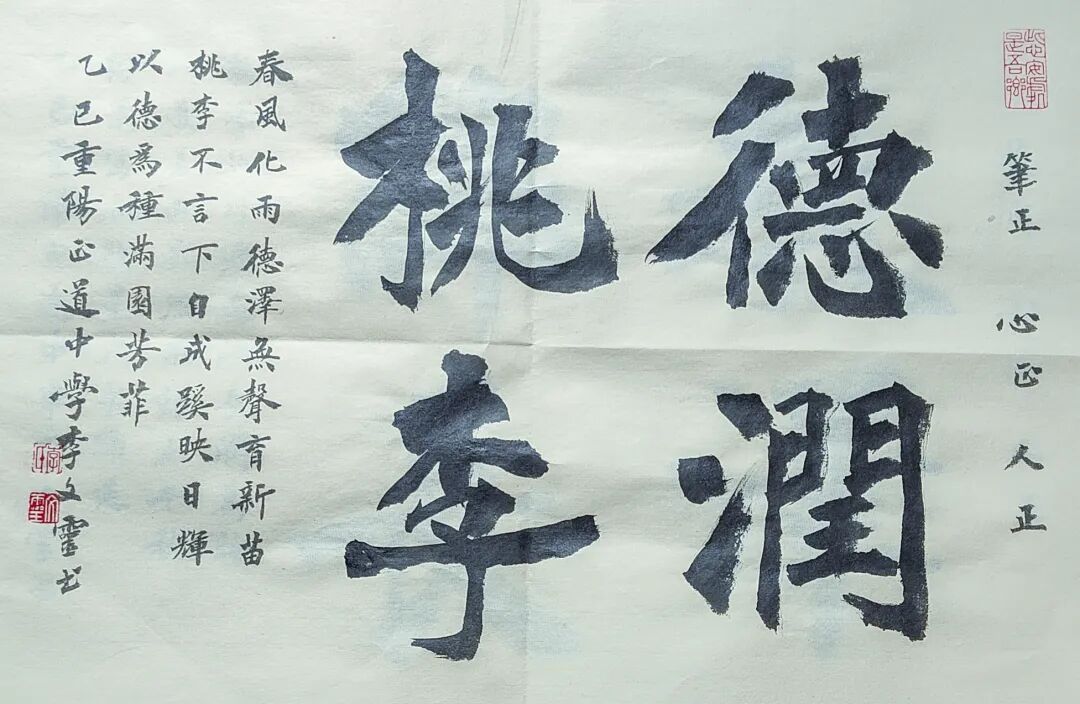 此心安處是吾鄉
筆正 心正 人正
德潤
桃李
春風化雨德澤無聲育新苗
桃李不言下自成蹊映日輝
以德爲種滿園芳菲
乙巳重陽正道中學李文霊书